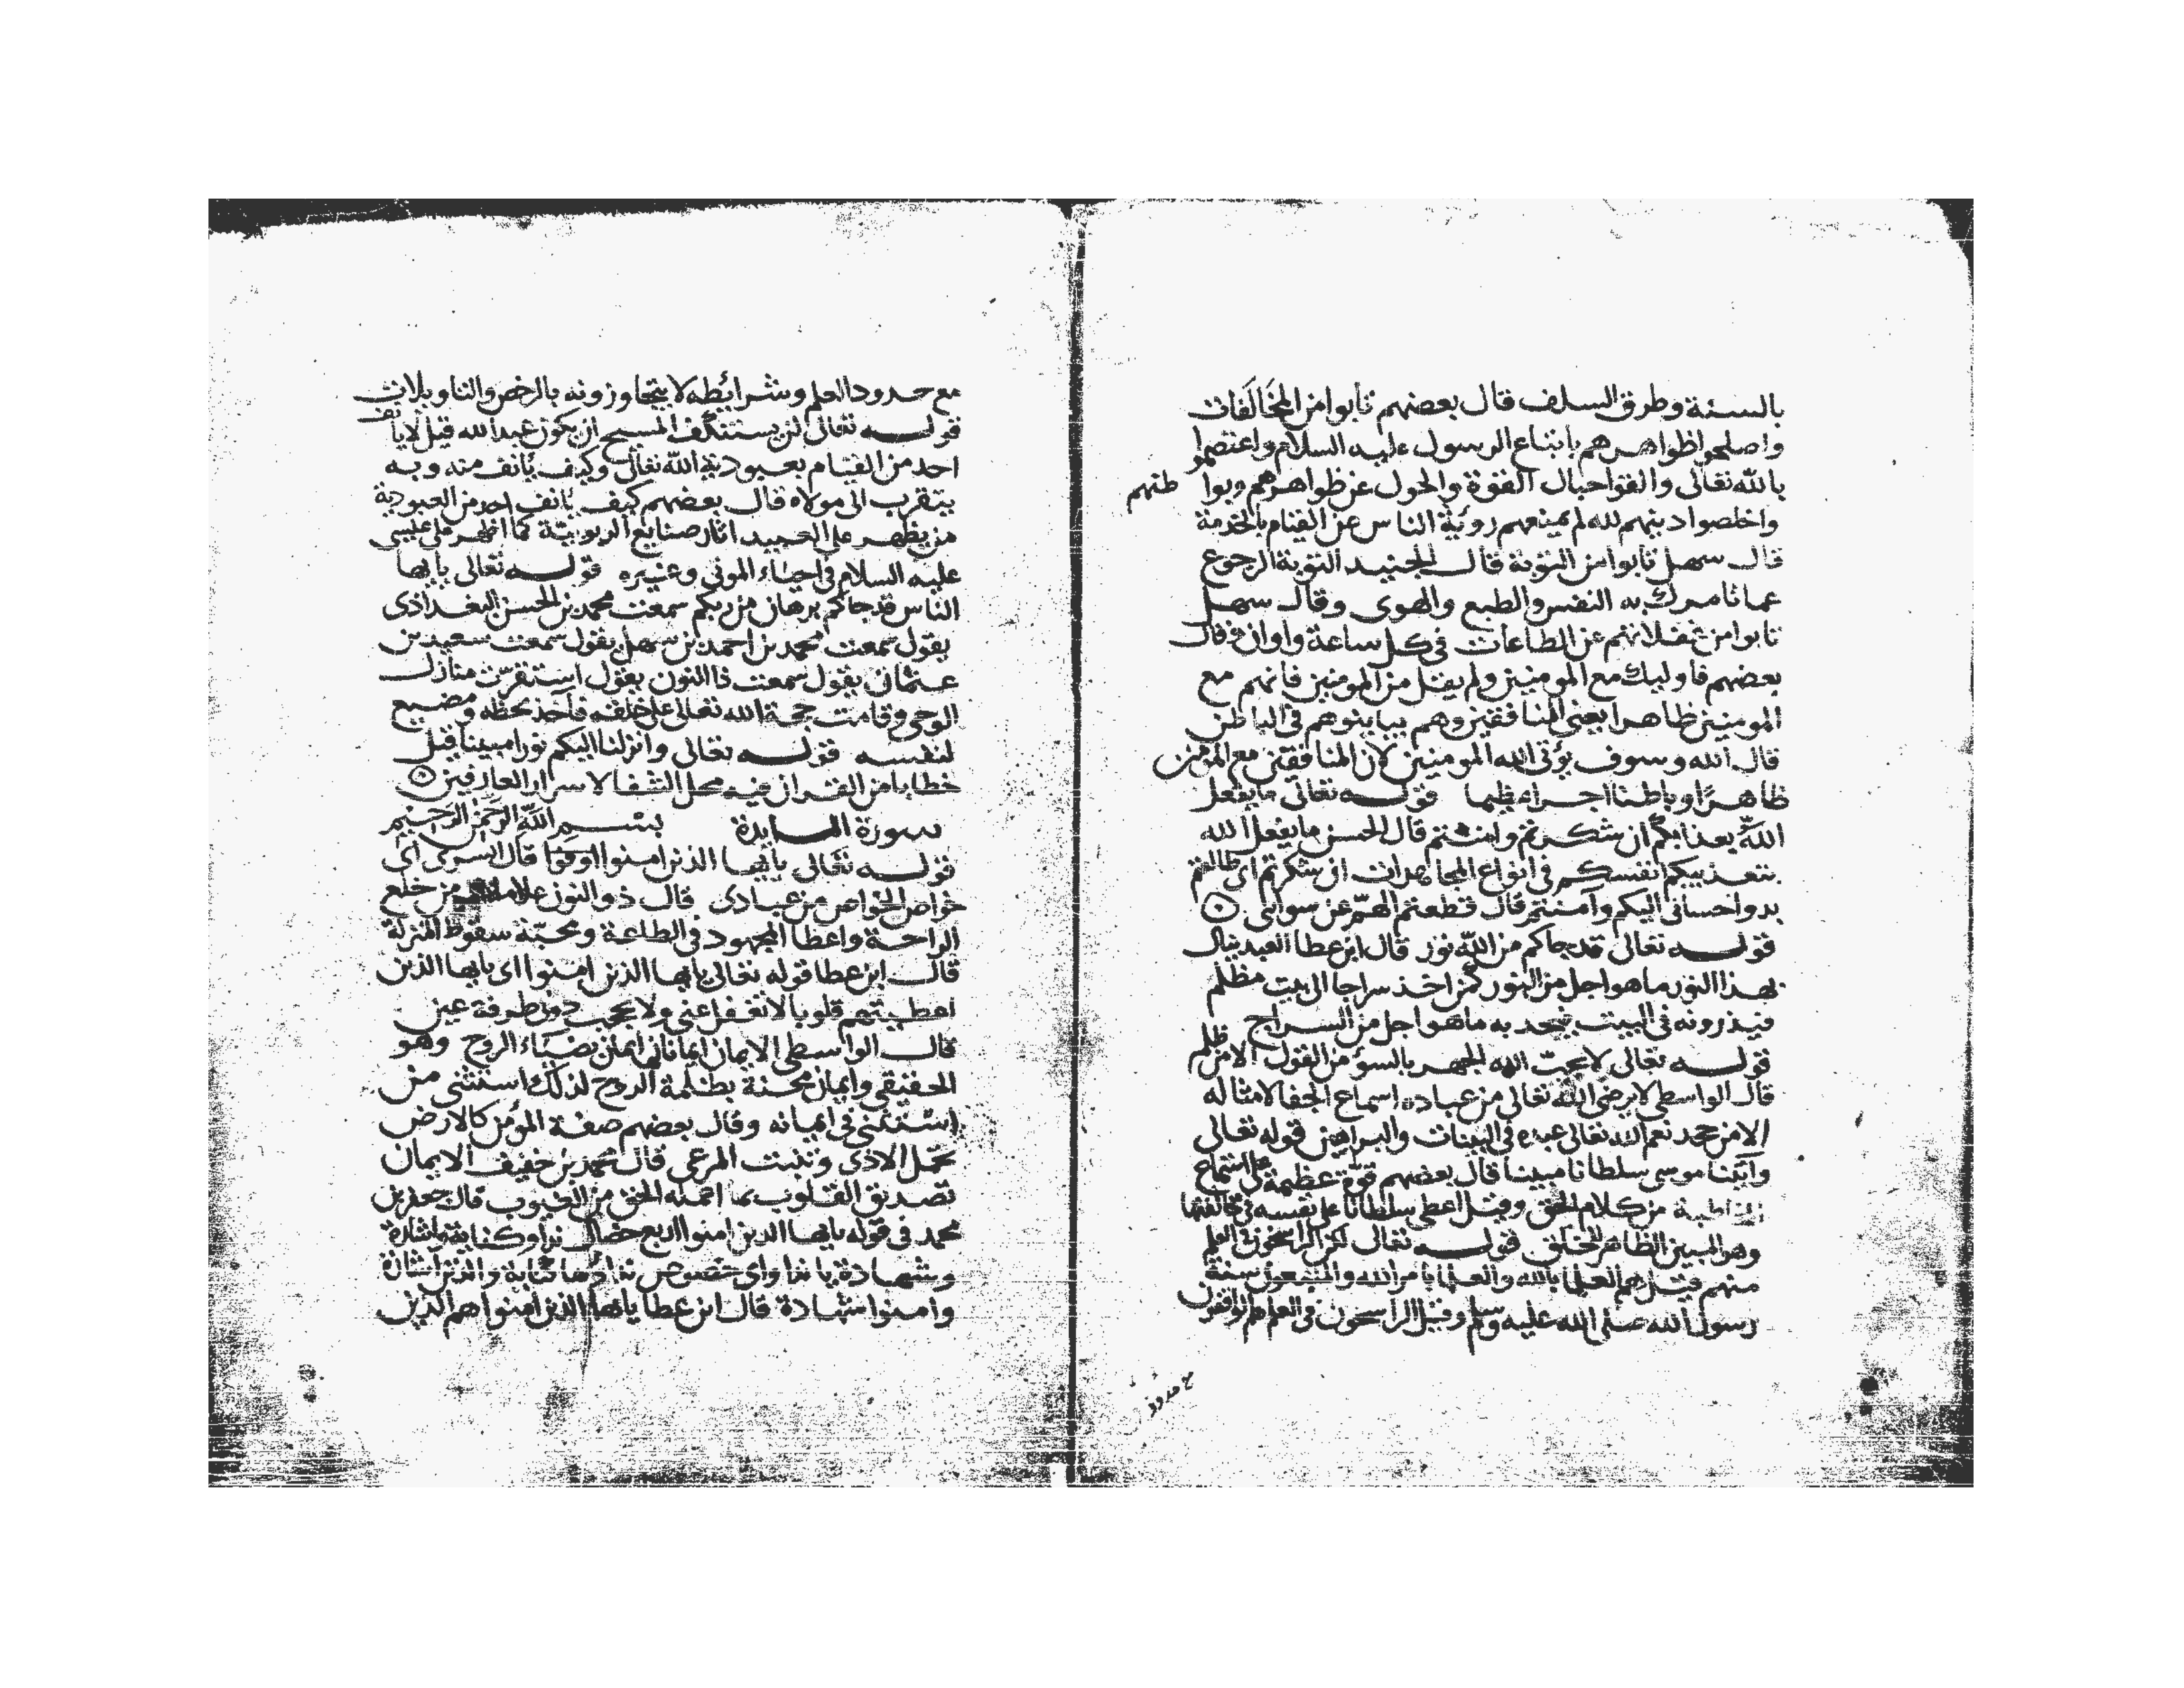 بالسنة وطرق السلف قال بعضهم تابوا من المخَالَفات
واصلحوا ظواهرهم باتباع الرسول عليه السلام واعتصموا
بالله تعالى والقوا حبال القوة والحول عن ظواهرهم وبوا طنهم
واخلصوا دينهم لله لم يمنعهم روئية الناس عن القيام بالخدمة
قال سهل تابوا من التوبة قال الجنيد التوبة الرجوع
عما تامرك به النفس والطبع والهوى وقال سهل
تابوا من غفلاتهم عن الطاعات في كل ساعة واوان وقال
بعضهم فاوليك مع المومنين ولم يقل من المومنين فانهم مع
المومنين ظاهرا يعني المنافقين وهم يباينوهم في الباطن
قال الله وسوف يؤتى الله المومنين لان المنافقين مع المومنين
ظاهرًا وباطنا اجرا عظيما قوله تعالى ما يفعل
الله بعذابكم ان شكرتم وامنتم قال الحسن ما يفعل الله
بتعذيبكم انفسكم في انواع المجاهدات ان شكرتم اى طالعتم
بدو احسانى اليكم وآمنتم قال قطعتم الهمّ عن سوائى
قوله تعالى قد جاكم من الله نور قال ابن عطا العبد ينال
بهذا النور ما هو اجل من النور كمن اخذ سراجا الى بيت مظلم
فيذرونه في البيت يجد به ما هو اجل من السراج
قوله تعالى لا يحبّ الله الجهر بالسؤ من القول الا من ظلم
قال الواسطي لا يرضى الله تعالى من عباده اسماع الجفا لامثاله
الا من جحد نعم الله تعالى عنده في البينات والبراهين قوله تعالى
وآتينا موسى سلطانا مبينا قال بعضهم قوّة عظيمة على استماع
من كلام الحق وقيل اعطى سلطانا على نفسه في مخالفتها
وهو المبين الظاهر للخلق قوله تعالى لكن الراسخون في العلم
منهم قيل هم العلما بالله والعلما بامر الله والمتبعون سنة
رسول الله صلى الله عليه وسلم وقيل الراسخون في العلم هم الواقفون
مع حدود
مع حدود العلم وشرايطه لا يتجاوزونه بالرخص والتاويلات
قوله تعالى لن يستنكف المسيح ان يكون عبدا لله قيل لا يانف
احد من القيام بعبودية الله تعالى وكيف يأنف منه وبه
يتقرب الى مولاه قال بعضهم كيف يانف احد من العبودية
من يظهر على العبيد اثار صنايع الربوبيّة كما اظهر على عيسى
عليه السلام في احياء الموتى وغيره قوله تعالى يايها
الناس قد جاكم برهان من ربكم سمعت محمد بن الحسن البغداذى
يقول سمعت محمد بن احمد بن سهل يقول سمعت سعيد بن
عثمان يقول سمعت ذا النون يقول استقرّت منازل
الوحي وقامت حجة الله تعالى على خلقه فآخذ بحظه ومضيع
لنفسه قوله تعالى وانزلنا اليكم نورا مبينا قيل
خطابا من القران فيه محل الشفا لاسرار العارفين
سورة المايدة بسم الله الرحمن الرحيم
قوله تعالى يأيها الذين امنوا اوفوا قال السرى اى
خواص الخواص من عبادى قال ذو النون علامة من خلع
الراحة واعطا المجهود في الطاعة ومحبّة سقوط المنزلة
قال ابن عطا قوله تعالى يايها الذين امنوا اى يايها الذين
اعطيتهم قلوبا لا تغفل عني ولا يحجب دونى طرفة عين
قال الواسطي الايمان ايمانان ايمان بضياء الروح وهو
الحقيقي وايمان محنة بظلمة الروح لذلك استثنى من
استثنى في ايمانه وقال بعضهم صفة المؤمن كالارض
تحمل الاذى وتنبت المرعى قال محمد بن خفيف الايمان
تصديق القلوب بما اعمله الحق من الغيوب قال جعفر بن
محمد في قوله يايها الذين امنوا اربع خصال نداو كناية واشارة
وشهادة يا ندا واى خصوص ندا وها كناية والذين اشارة
وامنوا شهادة قال ابن عطا يايها الذين امنوا هم الذين